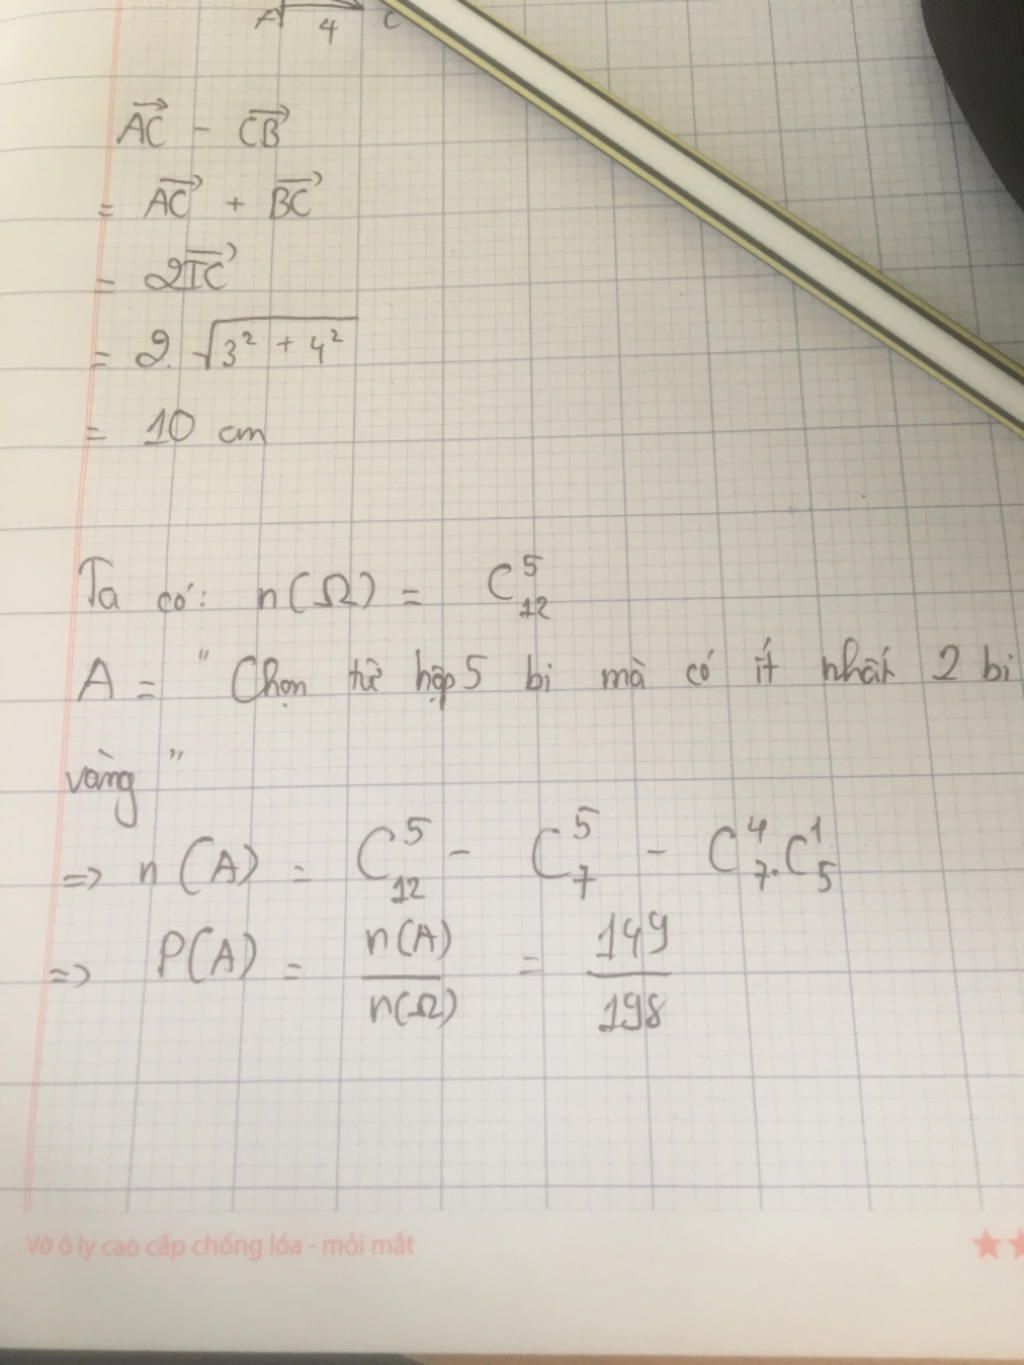 A 4 C
AC⃗ - CB⃗
= AC⃗ + BC⃗
= 2IC⃗
= 2.√(3² + 4²)
= 10 cm
Ta có: n(Ω) = C⁵₁₂
A = " Chọn từ hộp 5 bi mà có ít nhất 2 bi
vàng "
=> n(A) = C⁵₁₂ - C⁵₇ - C⁴₇.C¹₅
=> P(A) = n(A)/n(Ω) = 149/198
Vở ô ly cao cấp chống lóa - mỏi mắt